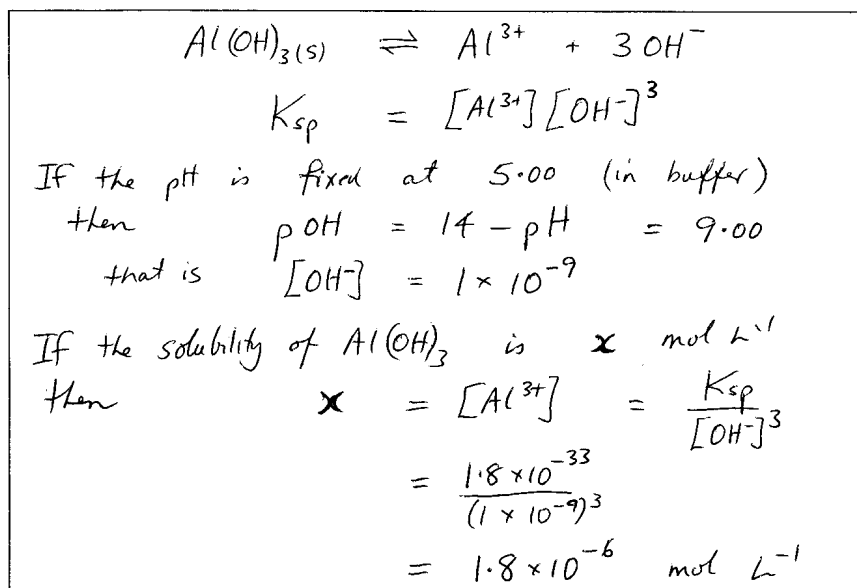 Al(OH)₃(s) ⇌ Al³⁺ + 3 OH⁻
Ksp = [Al³⁺] [OH⁻]³
If the pH is fixed at 5.00 (in buffer)
then pOH = 14 − pH = 9.00
that is [OH⁻] = 1 × 10⁻⁹
If the solubility of Al(OH)₃ is x mol L⁻¹
then x = [Al³⁺] = Ksp / [OH⁻]³
= 1.8 × 10⁻³³ / (1 × 10⁻⁹)³
= 1.8 × 10⁻⁶ mol L⁻¹